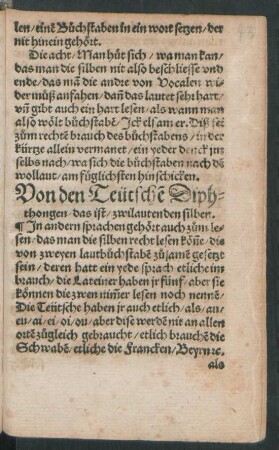 len / einē Bůchstaben in ein wort setzen / der
nit hinein gehört.
Die acht / Man hůt sich / wa man kan /
das man die silben nit also beschliesse vnd
ende / das mā die andte von Vocalen wi-
der můß anfahen / dañ das lautet sehr hart /
vñ gibt auch ein hart lesen / als wann man
also wölt bůchstabē / Ick els am er. Diß sei
zům rechtē brauch des bůchstabens / in der
kůrtze allein vermanet / ein yeder denck jm
selbs nach / wa sich die bůchstaben nach dē
wollaut / am fůglichsten hin schicken.
Von den Teůtschē Diph-
thongen / das ist / zwilautenden silben.
¶ In andern sprachen gehört auch zům le-
sen / das man die silben recht lesen köñe / die
von zweyen lautbůchstabē zůsamē gesetzt
sein / deren hatt ein yede sprach etliche im
brauch / die Lateiner haben jr fůnf / aber sie
können die zwen nim̃er lesen noch nennē /
Die Teůtsche haben jr auch etlich / als / au /
eu / ai / ei / oi / ou / aber dise werdē nit an allen
ortē zůgleich gebraucht / etlich brauchē die
Schwabē / etliche die Francken / Beyrn ꝛc.
als